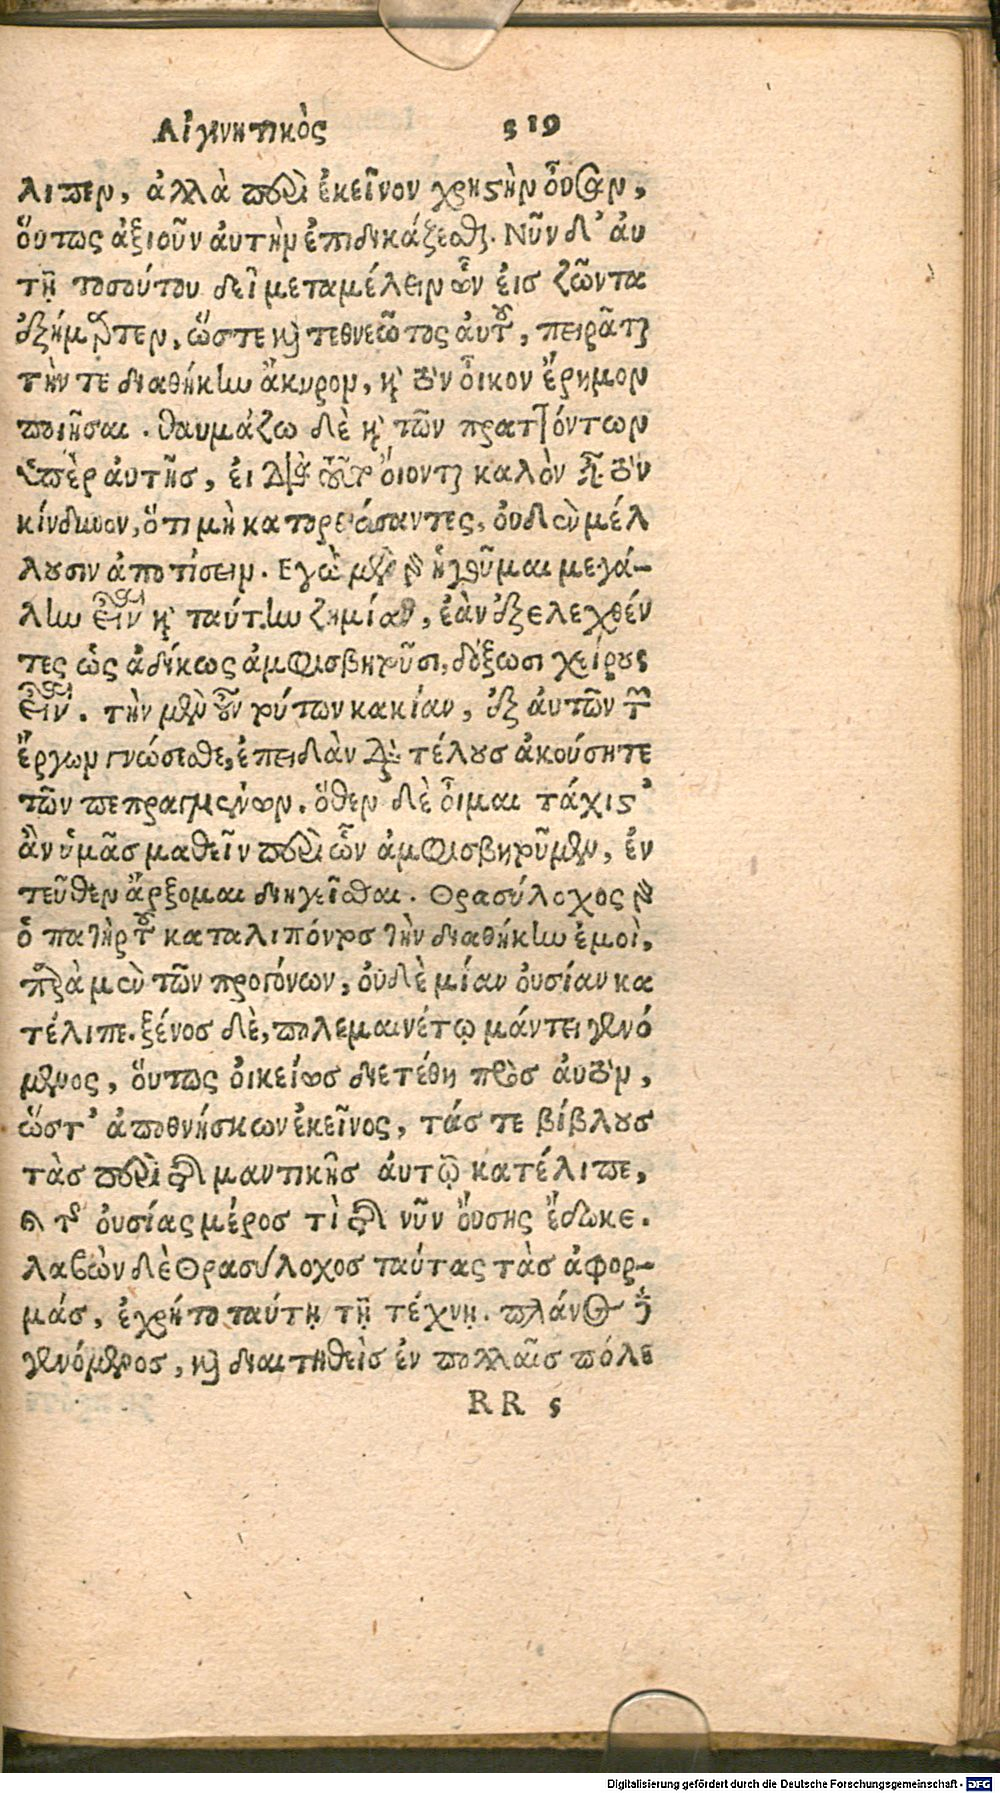 Αἰγινητικὸς 519
λιπεν, ἀλλὰ περὶ ἐκεῖνον χρηστὴν οὖσαν,
οὕτως ἀξιοῦν ἀυτὴν ἐπιδικάζεσθαι. Νῦν δ' ἀυ
τῇ τοσούτου δεῖ μεταμέλειν ὧν ἐισ ζῶντα
ἐξήμαρτεν, ὥστε καὶ τεθνεῶτος ἀυτοῦ, πειρᾶται
τὴν τε διαθήκην ἄκυρον, καὶ τὸν οἶκον ἔρημον
ποιῆσαι. θαυμάζω δὲ καὶ τῶν πραττόντων
ὑπὲρ ἀυτῆσ, ἐι διὰ τοῦτο ὄιονται καλὸν εἶναι τὸν
κίνδυνον, ὅτι μὴ κατορθώσαντες, ὀυδὲν μέλ
λουσιν ἀποτίσειν. Εγὼ μὲν γὰρ ἡγοῦμαι μεγά-
λην εἶναι καὶ ταύτην ζημίαν, ἐὰν ἐξελεγχθέν
τες ὡς ἀδίκως ἀμφισβητοῦσι, δόξωσι χείρους
εἶναι. τὴν μὲν οὖν τούτων κακίαν, ἐξ ἀυτῶν τῶν
ἔργων γνώσεσθε, ἐπειδὰν διὰ τέλουσ ἀκούσητε
τῶν πεπραγμένων. ὅθεν δὲ οἶμαι τάχιστ'
ἂν ὑμᾶσ μαθεῖν περὶ ὧν ἀμφισβητοῦμεν, ἐν
τεῦθεν ἄρξομαι διηγεῖσθαι. Θρασύλοχος γὰρ
ὁ πατὴρ τοῦ καταλιπόντοσ τὴν διαθήκην ἐμοὶ,
παρὰ μὲν τῶν προγόνων, οὐδὲ μίαν ὀυσίαν κα
τέλιπε. ξένοσ δὲ, πολεμαινέτῳ μάντει γενό
μενος, οὕτως ὀικείωσ διετέθη πρὸσ ἀυτὸν,
ὥστ' ἀποθνήσκων ἐκεῖνος, τάσ τε βίβλουσ
τὰσ περὶ τῆς μαντικῆσ ἀυτῷ κατέλιπε,
καὶ τῆς ὀυσίας μέροσ τὶ τῆς νῦν ὄυσης ἔδωκε.
λαβὼν δὲ Θρασύλοχοσ ταύτας τὰσ ἀφορ-
μάσ, ἐχρήτο ταύτῃ τῇ τέχνῃ. πλάνος δὲ
γενόμενος, καὶ διαιτηθεὶσ ἐν πολλαῖσ πόλε
RR 5
Digitalisierung gefördert durch die Deutsche Forschungsgemeinschaft - DFG